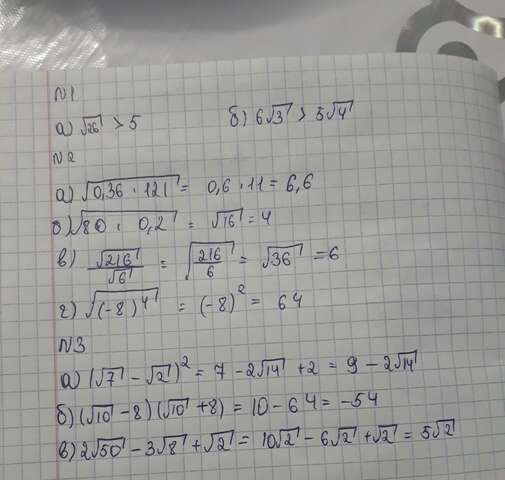 N1
а) √26 > 5 б) 6√3 > 5√4
N2
а) √(0,36 · 121) = 0,6 · 11 = 6,6
б) √(80 · 0,2) = √16 = 4
в) √216/√6 = √(216/6) = √36 = 6
г) √((-8)⁴) = (-8)² = 64
N3
а) (√7 - √2)² = 7 - 2√14 + 2 = 9 - 2√14
б) (√10 - 8)(√10 + 8) = 10 - 64 = -54
в) 2√50 - 3√8 + √2 = 10√2 - 6√2 + √2 = 5√2